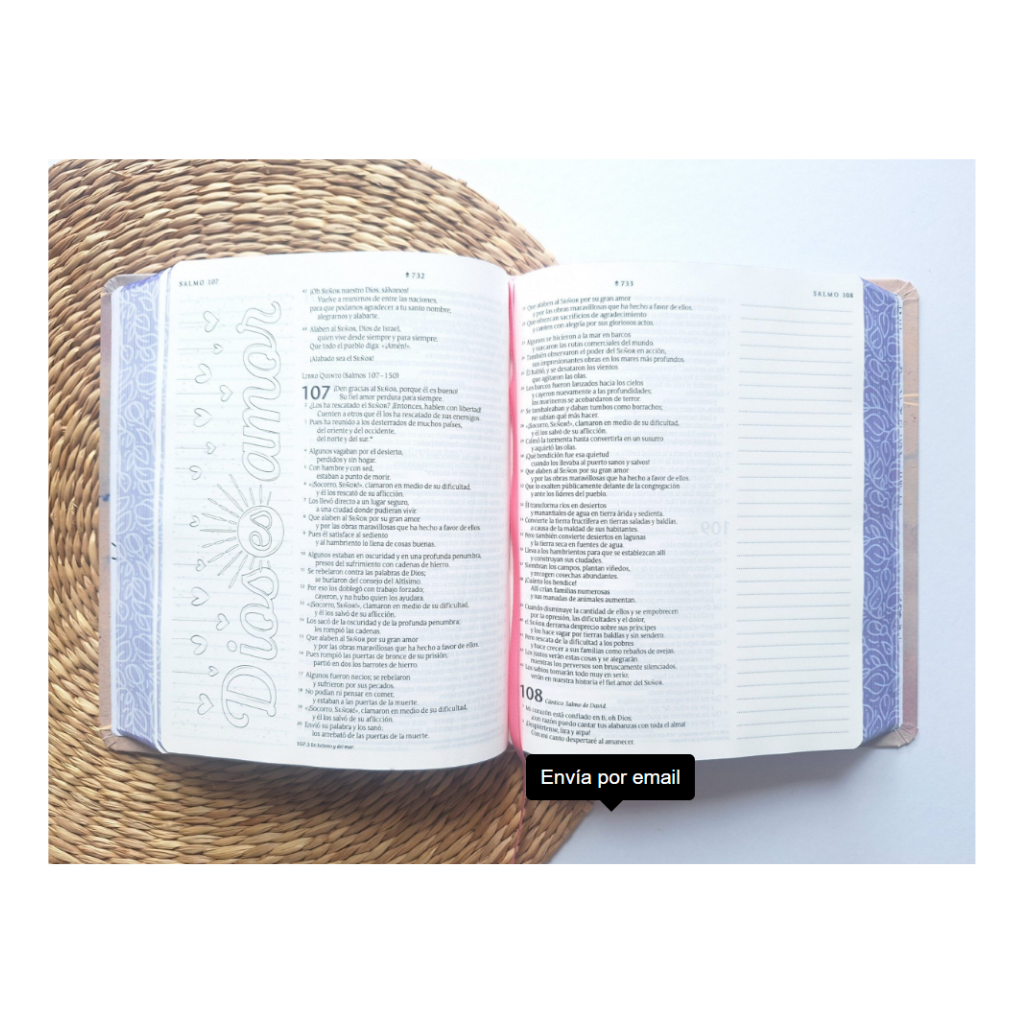 SALMO 107
732
Dios es amor
47 ¡Oh SEÑOR nuestro Dios, sálvanos!
Vuelve a reunirnos de entre las naciones,
para que podamos agradecer a tu santo nombre,
alegrarnos y alabarte.
48 Alaben al SEÑOR, Dios de Israel,
quien vive desde siempre y para siempre.
Que todo el pueblo diga: «¡Amén!».
¡Alabado sea el SEÑOR!
LIBRO QUINTO (Salmos 107–150)
107 ¡Den gracias al SEÑOR, porque él es bueno!
Su fiel amor perdura para siempre.
2 ¿Los ha rescatado el SEÑOR? ¡Entonces, hablen con libertad!
Cuenten a otros que él los ha rescatado de sus enemigos.
3 Pues ha reunido a los desterrados de muchos países,
del oriente y del occidente,
del norte y del sur.*
4 Algunos vagaban por el desierto,
perdidos y sin hogar.
5 Con hambre y con sed,
estaban a punto de morir.
6 «¡Socorro, SEÑOR!», clamaron en medio de su dificultad,
y él los rescató de su aflicción.
7 Los llevó directo a un lugar seguro,
a una ciudad donde pudieran vivir.
8 Que alaben al SEÑOR por su gran amor
y por las obras maravillosas que ha hecho a favor de ellos.
9 Pues él satisface al sediento
y al hambriento lo llena de cosas buenas.
10 Algunos estaban en oscuridad y en una profunda penumbra,
presos del sufrimiento con cadenas de hierro.
11 Se rebelaron contra las palabras de Dios;
se burlaron del consejo del Altísimo.
12 Por eso los doblegó con trabajo forzado;
cayeron, y no hubo quien los ayudara.
13 «¡Socorro, SEÑOR!», clamaron en medio de su dificultad,
y él los salvó de su aflicción.
14 Los sacó de la oscuridad y de la profunda penumbra;
les rompió las cadenas.
15 Que alaben al SEÑOR por su gran amor
y por las obras maravillosas que ha hecho a favor de ellos.
16 Pues rompió las puertas de bronce de su prisión;
partió en dos los barrotes de hierro.
17 Algunos fueron necios; se rebelaron
y sufrieron por sus pecados.
18 No podían ni pensar en comer,
y estaban a las puertas de la muerte.
19 «¡Socorro, SEÑOR!», clamaron en medio de su dificultad,
y él los salvó de su aflicción.
20 Envió su palabra y los sanó;
los arrebató de las puertas de la muerte.
107:3 En hebreo y del mar
733
SALMO 108
21 Que alaben al SEÑOR por su gran amor
y por las obras maravillosas que ha hecho a favor de ellos.
22 Que ofrezcan sacrificios de agradecimiento
y canten con alegría por sus gloriosos actos.
23 Algunos se hicieron a la mar en barcos
y surcaron las rutas comerciales del mundo.
24 También observaron el poder del SEÑOR en acción,
sus impresionantes obras en los mares más profundos.
25 Él habló, y se desataron los vientos
que agitaron las olas.
26 Los barcos fueron lanzados hacia los cielos
y cayeron nuevamente a las profundidades;
los marineros se acobardaron de terror.
27 Se tambaleaban y daban tumbos como borrachos;
no sabían qué más hacer.
28 «¡Socorro, SEÑOR!», clamaron en medio de su dificultad,
y él los salvó de su aflicción.
29 Calmó la tormenta hasta convertirla en un susurro
y aquietó las olas.
30 ¡Qué bendición fue esa quietud
cuando los llevaba al puerto sanos y salvos!
31 Que alaben al SEÑOR por su gran amor
y por las obras maravillosas que ha hecho a favor de ellos.
32 Que lo exalten públicamente delante de la congregación
y ante los líderes del pueblo.
33 Él transforma ríos en desiertos
y manantiales de agua en tierra árida y sedienta.
34 Convierte la tierra fructífera en tierras saladas y baldías,
a causa de la maldad de sus habitantes.
35 Pero también convierte desiertos en lagunas
y la tierra seca en fuentes de agua.
36 Lleva a los hambrientos para que se establezcan allí
y construyan sus ciudades.
37 Siembran los campos, plantan viñedos,
y recogen cosechas abundantes.
38 ¡Cuánto los bendice!
Allí crían familias numerosas
y sus manadas de animales aumentan.
39 Cuando disminuye la cantidad de ellos y se empobrecen
por la opresión, las dificultades y el dolor,
40 el SEÑOR derrama desprecio sobre sus príncipes
y los hace vagar por tierras baldías y sin sendero.
41 Pero rescata de la dificultad a los pobres
y hace crecer a sus familias como rebaños de ovejas.
42 Los justos verán estas cosas y se alegrarán
mientras los perversos son bruscamente silenciados.
43 Los sabios tomarán todo muy en serio;
verán en nuestra historia el fiel amor del SEÑOR.
108 Cántico. Salmo de David.
1 Mi corazón está confiado en ti, oh Dios;
¡con razón puedo cantar tus alabanzas con toda el alma!
2 ¡Despiértense, lira y arpa!
Con mi canto despertaré al amanecer.
Envía por email